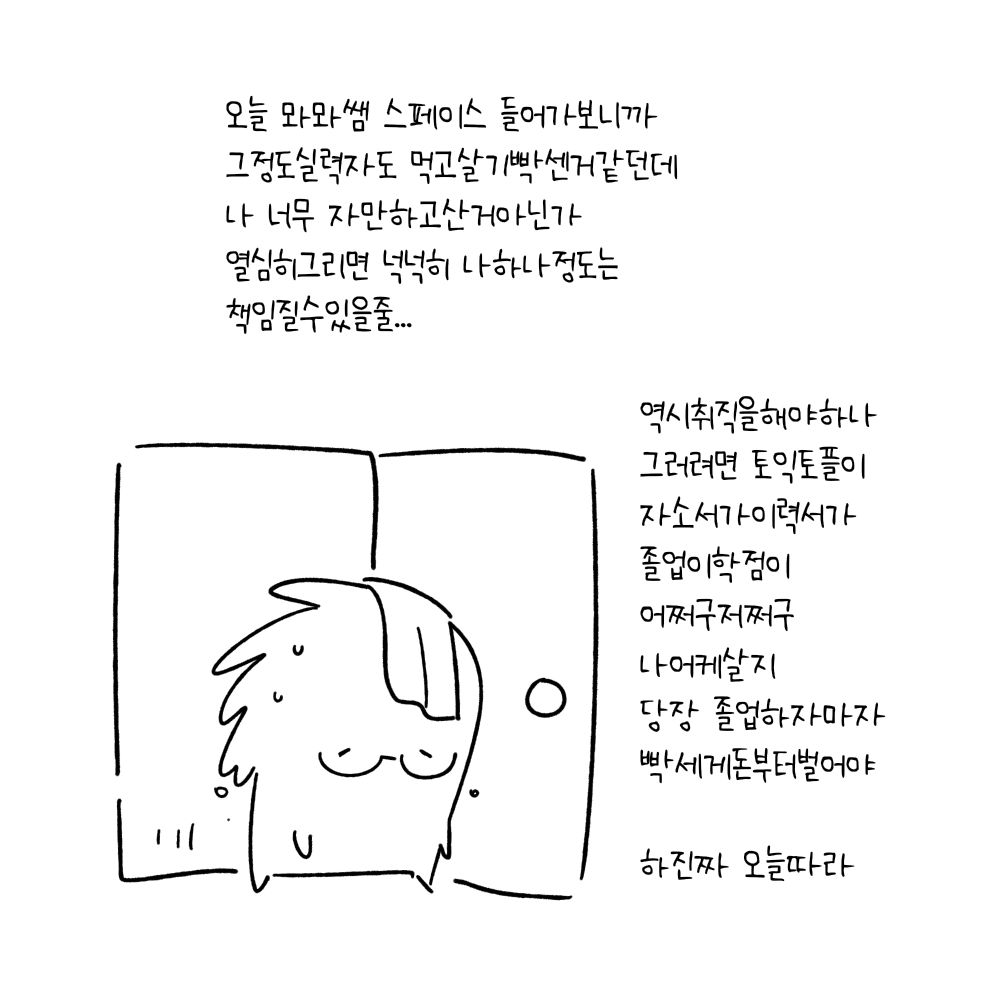 오늘 뫄뫄쌤 스페이스 들어가보니까
그정도실력자도 먹고살기빡센거같던데
나 너무 자만하고산거아닌가
열심히그리면 넉넉히 나하나정도는
책임질수있을줄...
역시취직을해야하나
그러려면 토익토플이
자소서가이력서가
졸업이학점이
어쩌구저쩌구
나어케살지
당장 졸업하자마자
빡세게돈부터벌어야
하진짜 오늘따라